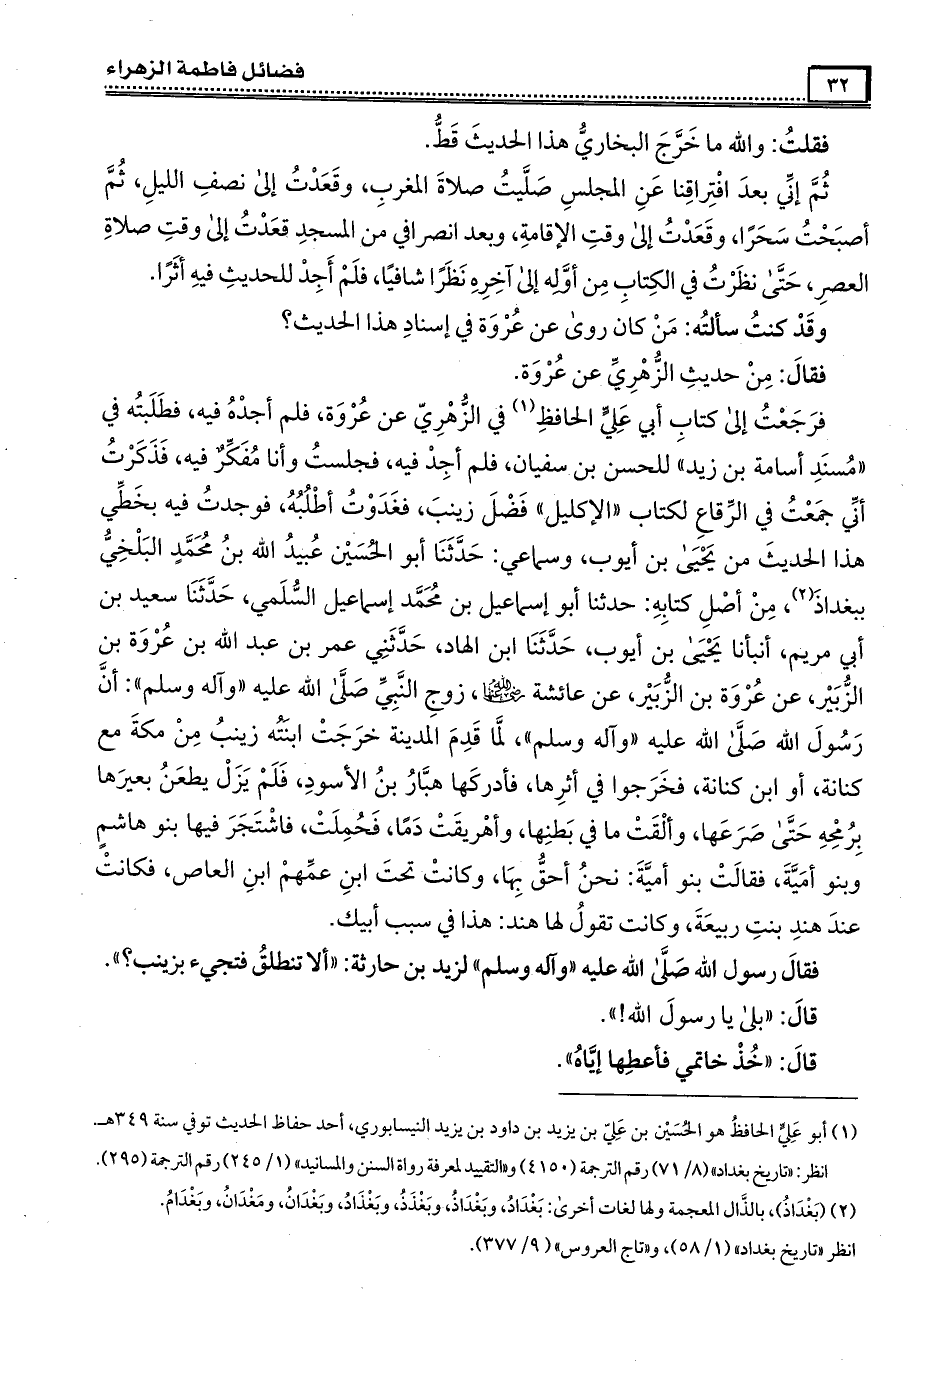 ٣٢
فضائل فاطمة الزهراء
فقلتُ: والله ما خَرَّجَ البخاريُّ هذا الحديثَ قَطُّ.
ثُمَّ إنِّي بعدَ افْتِراقِنا عَنِ المجلسِ صَلَّيتُ صلاةَ المغربِ، وقَعَدْتُ إلىٰ نصفِ الليلِ، ثُمَّ
أصبَحْتُ سَحَرًا، وقَعَدْتُ إلىٰ وقتِ الإقامةِ، وبعد انصرافي من المسجدِ قعَدْتُ إلىٰ وقتِ صلاةِ
العصرِ، حَتَّىٰ نظَرْتُ في الكِتابِ مِن أوَّلِه إلىٰ آخِرِه نَظَرًا شافيًا، فلَمْ أَجِدْ للحديثِ فيهِ أثَرًا.
وقَدْ كنتُ سألتُه: مَنْ كان روىٰ عن عُرْوَة في إسنادِ هذا الحديث؟
فقالَ: مِنْ حديثِ الزُّهْريِّ عن عُرْوَة.
فرَجَعْتُ إلىٰ كتابِ أبي عَلِيٍّ الحافظِ(١) في الزُّهْريّ عن عُرْوَة، فلم أجدْهُ فيه، فطَلَبتُه في
«مُسنَدِ أسامة بن زيد» للحسن بن سفيان، فلم أجِدْ فيه، فجلستُ وأنا مُفَكِّرٌ فيه، فَذَكَرْتُ
أنِّي جمَعْتُ في الرِّقاعِ لكتاب «الإكليل» فَضْلَ زينبَ، فغَدَوْتُ أطْلُبُهُ، فوجدتُ فيه بخَطِّي
هذا الحديثَ من يَحْيَىٰ بن أيوب، وسماعي: حَدَّثَنَا أبو الحُسَيْن عُبيدُ الله بنُ مُحَمَّدٍ البَلْخِيُّ
ببغداذَ(٢)، مِنْ أصْلِ كتابِهِ: حدثنا أبو إسماعيل بن مُحَمَّد إسماعيل السُّلَمي، حَدَّثَنَا سعيد بن
أبي مريم، أنبأنا يَحْيَىٰ بن أيوب، حَدَّثَنَا ابن الهاد، حَدَّثَنِي عمر بن عبد الله بن عُرْوَة بن
الزُّبَيْر، عن عُرْوَة بن الزُّبَيْر، عن عائشة رضي الله عنها، زوجِ النَّبيِّ صَلَّىٰ الله عليه «وآله وسلم»: أنَّ
رَسُولَ الله صَلَّىٰ الله عليه «وآله وسلم»، لمَّا قَدِمَ المدينة خرَجَتْ ابنَتُه زينبُ مِنْ مكةَ مع
كنانة، أو ابن كنانة، فخَرَجوا في أثرِها، فأدركَها هبَّارُ بنُ الأسودِ، فلَمْ يَزَلْ يطعَنُ بعيرَها
بِرُمْحِهِ حَتَّىٰ صَرَعَها، وألْقَتْ ما في بَطنِها، وأهْرِيقَتْ دَمًا، فَحُمِلَتْ، فاشْتَجَرَ فيها بنو هاشمٍ
وبنو أمَيَّةَ، فقالَتْ بنو أميَّةَ: نحنُ أحقُّ بِهَا، وكانتْ تحتَ ابنِ عمِّهمْ ابنِ العاص، فكانَتْ
عندَ هندِ بنتِ ربيعَةَ، وكانت تقولُ لها هند: هذا في سبب أبيك.
فقالَ رسول الله صَلَّىٰ الله عليه «وآله وسلم» لزيد بن حارثة: «ألا تنطلقُ فتجيء بزينب؟».
قالَ: «بلىٰ يا رسولَ الله!».
قالَ: «خُذْ خاتمي فأعطِها إيَّاهُ».
(١) أبو عَلِيٍّ الحافظُ هو الحُسَيْن بن عَلِيّ بن يزيد بن داود بن يزيد النيسابوري، أحد حفاظ الحديث توفي سنة ٣٤٩هـ.
انظر: «تاريخ بغداد»(٨/ ٧١) رقم الترجمة (٤١٥٠) و«التقييد لمعرفة رواة السنن والمسانيد» (١/ ٢٤٥) رقم الترجمة (٢٩٥).
(٢) (بَغْدَاذُ)، بالذَّال المعجمة ولها لغات أخرىٰ: بَغْدَادُ، وبَغْدَاذُ، وبَغْذَذُ، وبَغْذَادُ، وبَغْدَانُ، ومَغْدَانُ، وبَغْدَامُ.
انظر «تاريخ بغداد» (١/ ٥٨)، و«تاج العروس» (٩/ ٣٧٧).